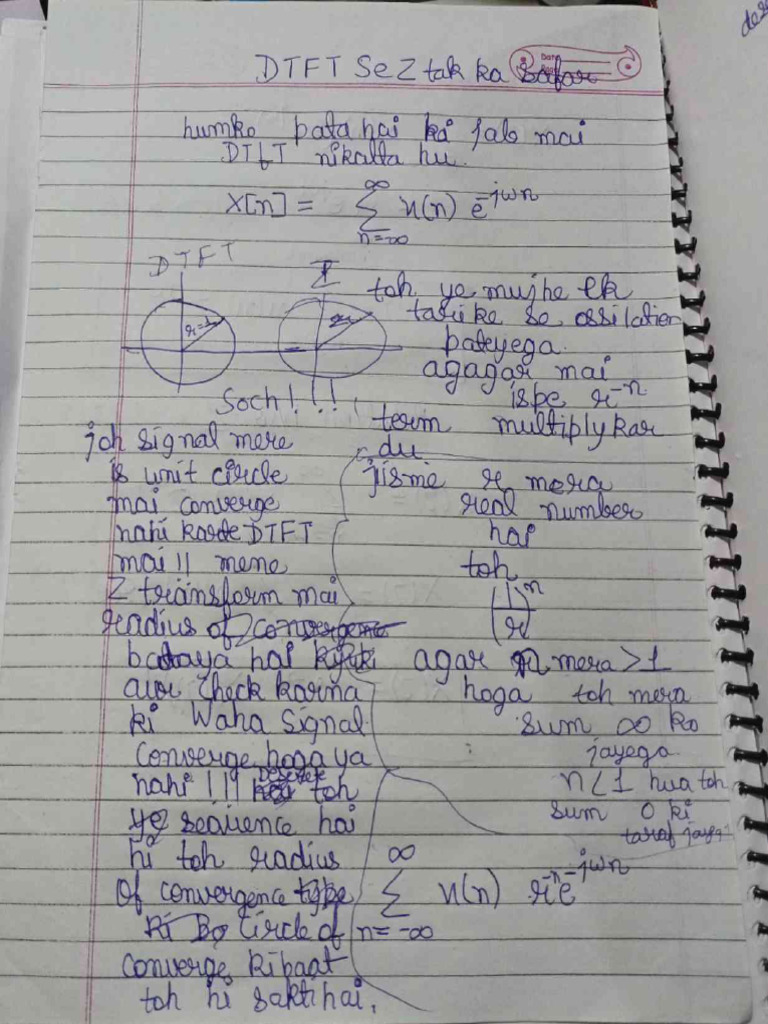 DTFT Se Z tak ka safar
humko pata hai ki jab mai
DTFT nikalta hu.
X[n] = ∞ Σ n=-∞ x(n) e^-jwn
DTFT
Z
r=1
toh ye mujhe ek
tarike se ossilation
pateyega.
agagar mai
ispe r^-n
term multiply kar
du
jisme r mera
real number
hai
toh
(1/r)^n
agar n mera >1
hoga toh mera
sum ∞ ko
jayega
n<1 hua toh
sum 0 ki
taraf
∞ Σ n=-∞ x(n) r^-n e^-jwn
Soch!!!!
joh signal mere
is unit circle
mai converge
nahi karde DTFT
mai || mene
Z transform mai
radius of Z convergence
badaya hai kyuki
aur check karna
ki Waha Signal
Converge hoga ya
nahi !!! Descrete toh
ye seqience hai
hi toh radius
Of convergence type
Ki Circle of
converge ki baat
toh hi sakti hai.